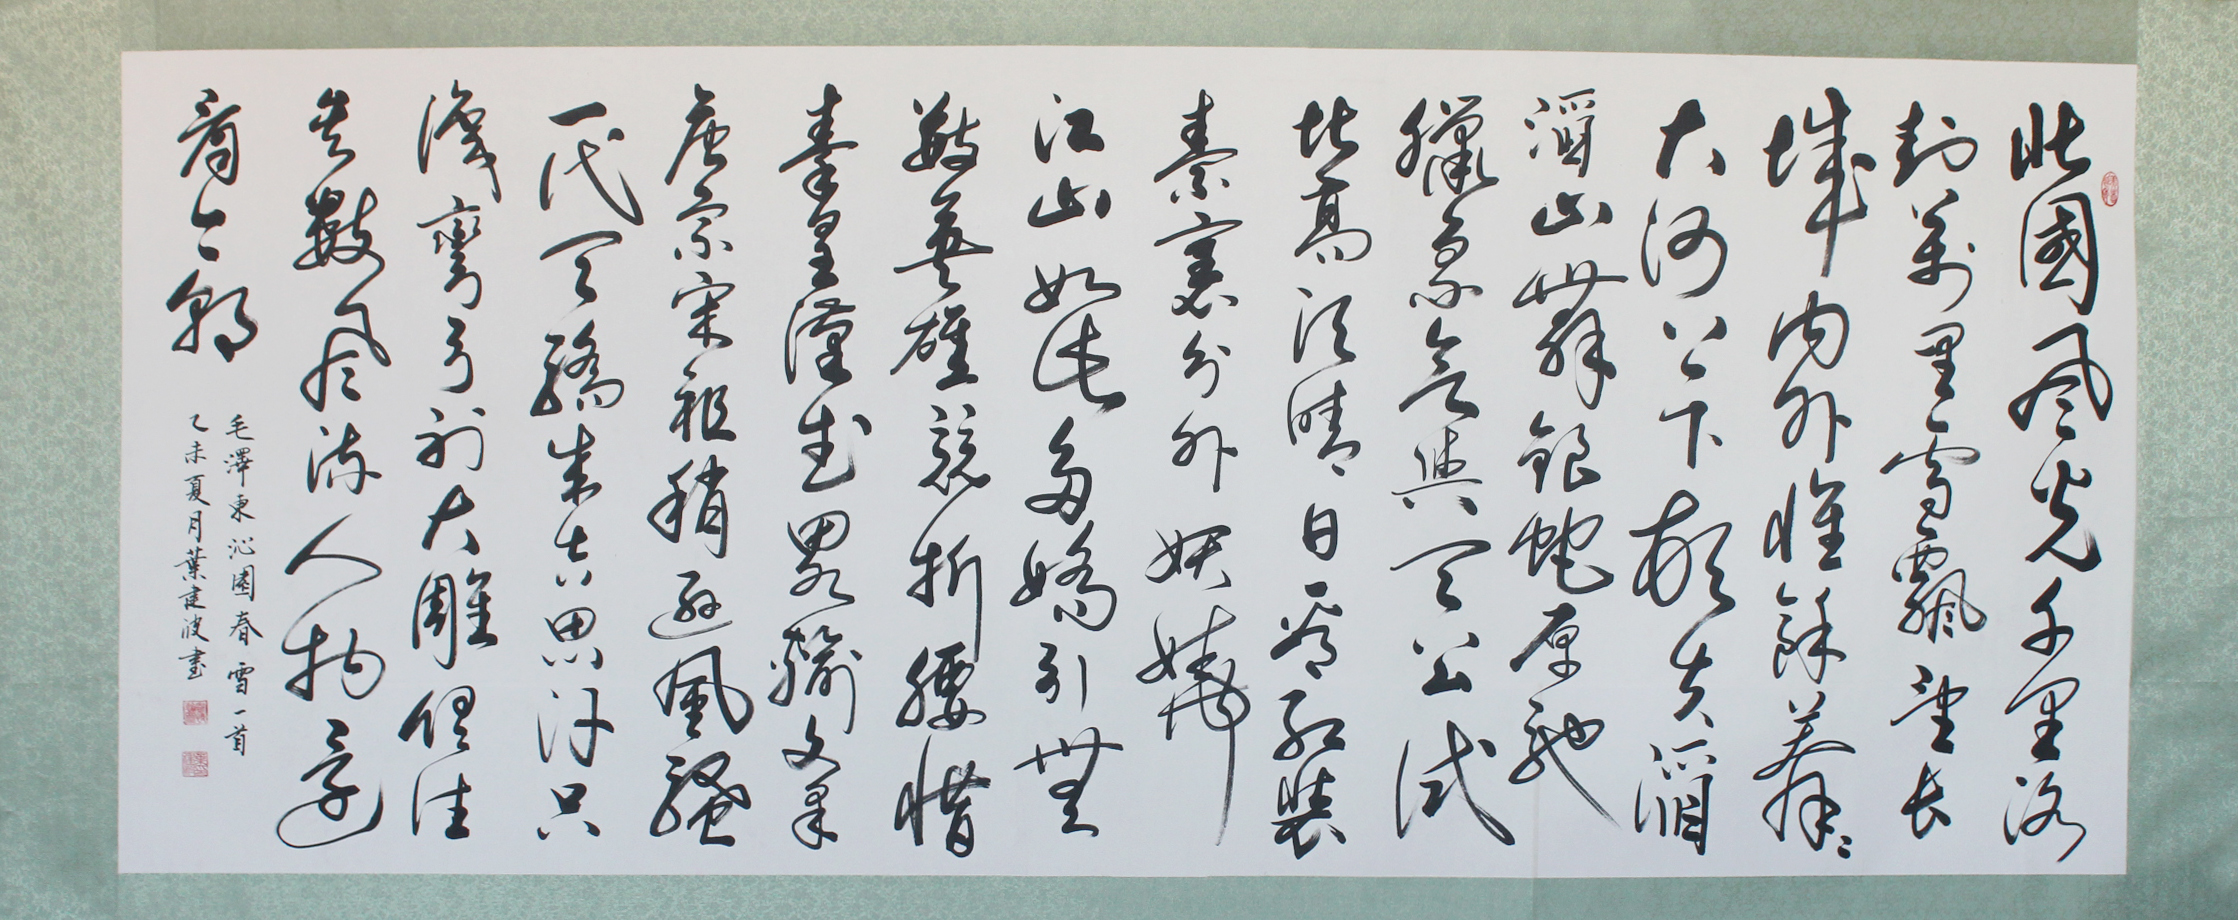 北國風光千里冰
封萬里雪飄望長
城內外惟餘莽莽
大河上下頓失滔
滔山舞銀蛇原馳
臘象欲與天公試
比高須晴日看紅裝
素裹分外妖嬈
江山如此多嬌引無
數英雄競折腰惜
秦皇漢武略輸文采
唐宗宋祖稍遜風騷
一代天驕成吉思汗只
識彎弓射大雕俱往
矣數風流人物還
看今朝
毛澤東沁園春雪一首
乙未夏月葉建波書